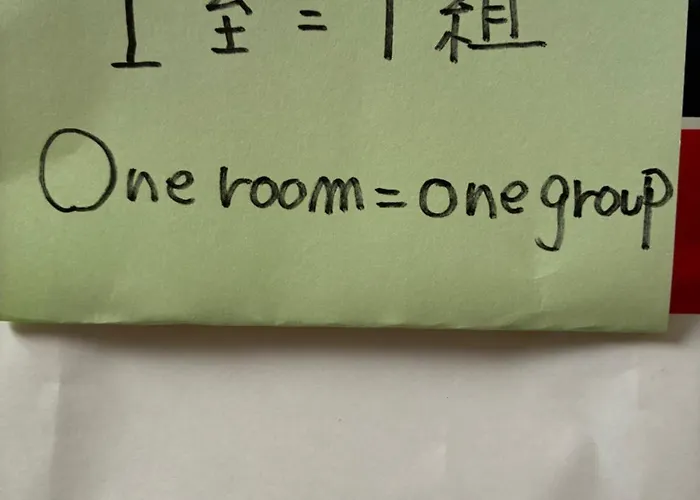 1室=1組
One room=one group